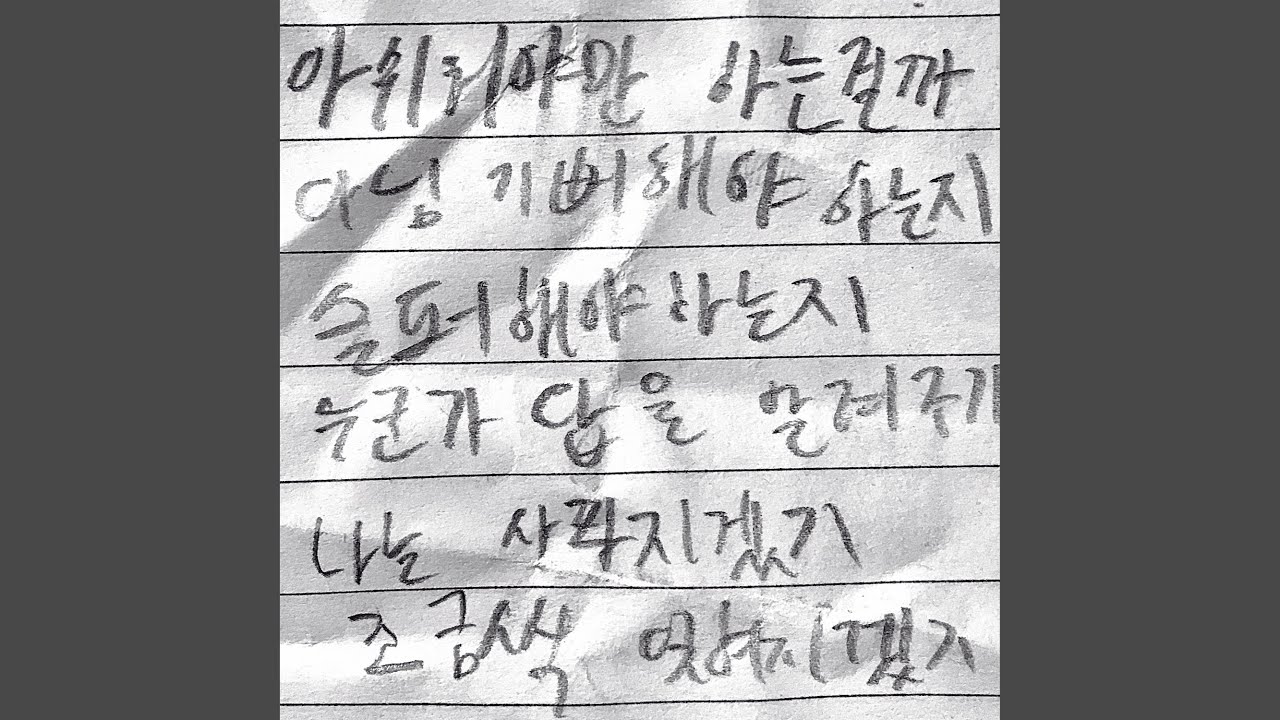 아쉬워야만 하는걸까
아님 기뻐해야 하는지
슬퍼해야하는지
누군가 답을 알려주기
나는 사라지겠지
조금씩 잊혀지겠지